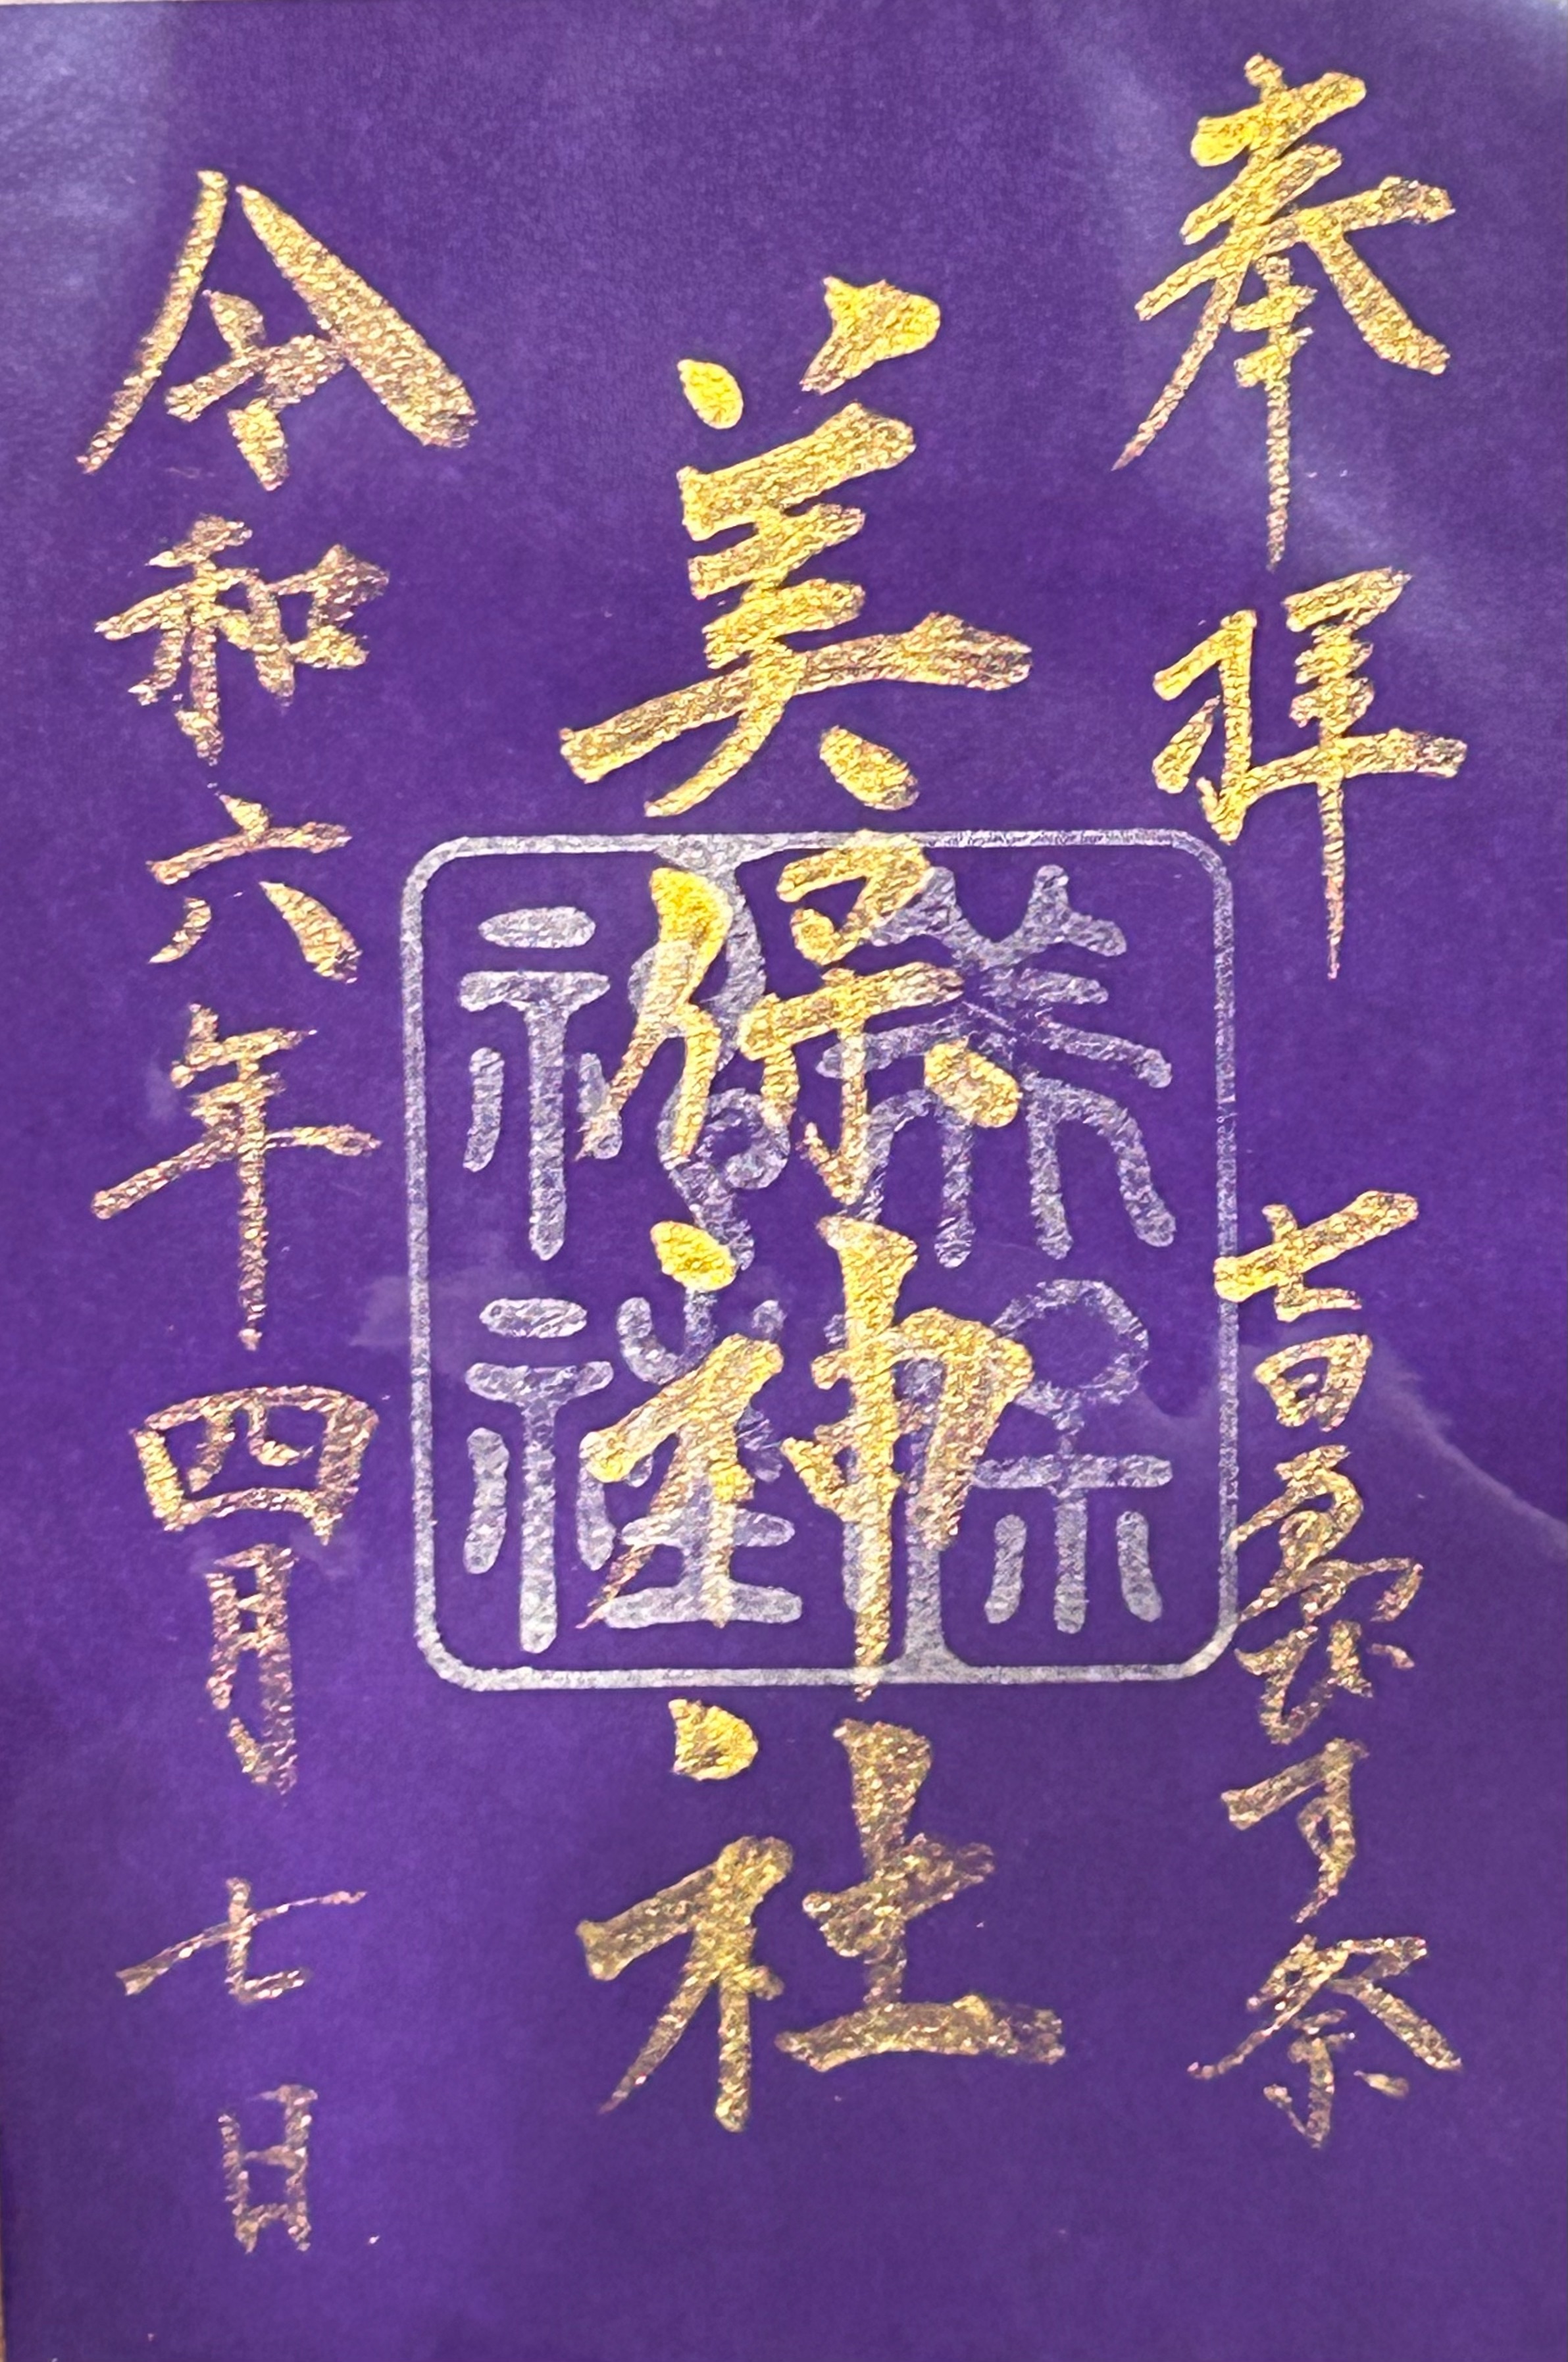 奉拝
祭
美保神社
美保神社
令和六年四月七日